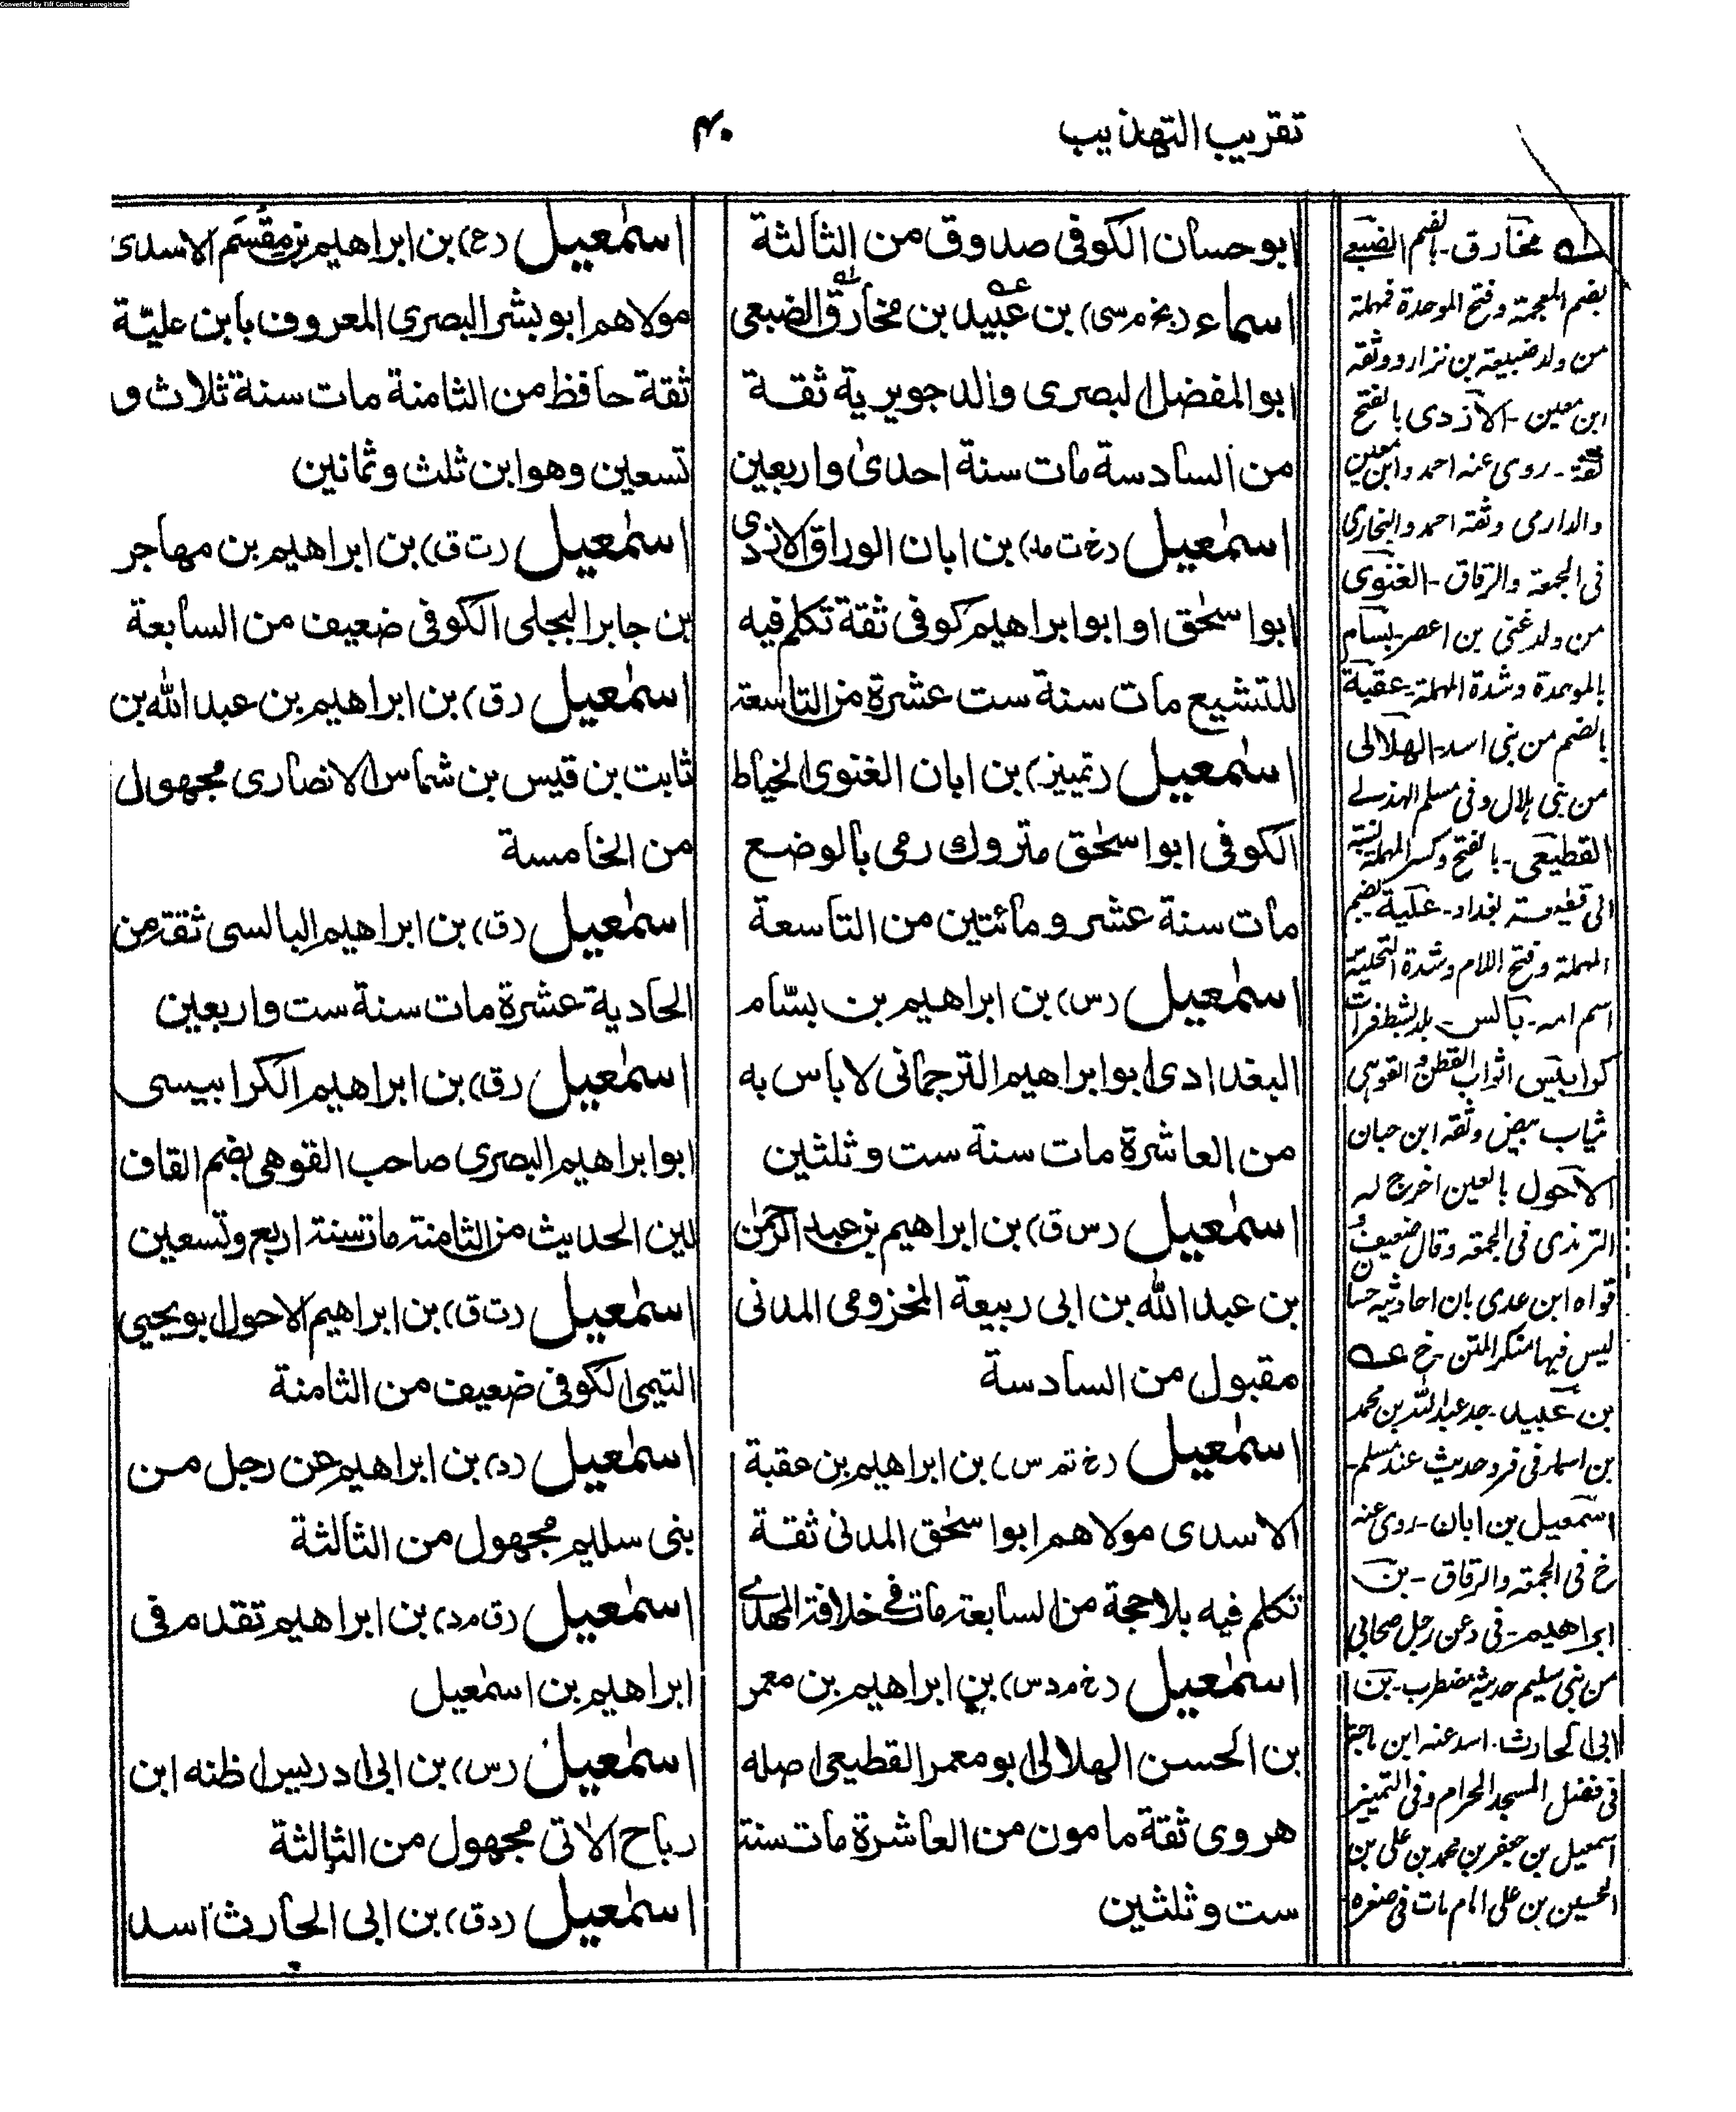 Converted by Tiff Combine - unregistered
تقريب التهذيب
۴۰
ابو حسان الكوفى صدوق من الثالثة
اسماء (بخ م سى) بن عبيد بن مخارق الضبعى
ابو المفضل البصرى والد جويرية ثقة
من السادسة مات سنة احدى واربعين
اسمٰعيل (خ ت مد) بن ابان الوراق الازدى
ابو اسحٰق او ابو ابراهيم كوفى ثقة تكلم فيه
للتشيع مات سنة ست عشرة من التاسعة
اسمٰعيل (تمييز) بن ابان الغنوى الخياط
الكوفى ابو اسحٰق متروك رمى بالوضع
مات سنة عشر ومائتين من التاسعة
اسمٰعيل (س) بن ابراهيم بن بسّام
البغدادى ابو ابراهيم الترجمانى لا باس به
من العاشرة مات سنة ست وثلثين
اسمٰعيل (س ق) بن ابراهيم بن عبد الرحمٰن
بن عبد الله بن ابى ربيعة المخزومى المدنى
مقبول من السادسة
اسمٰعيل (خ تم س) بن ابراهيم بن عقبة
الاسدى مولاهم ابو اسحٰق المدنى ثقة
تكلم فيه بلا حجة من السابعة مات فى خلافة المهدى
اسمٰعيل (خ م د س) بن ابراهيم بن معمر
بن الحسن الهلالى ابو معمر القطيعى اصله
هروى ثقة مامون من العاشرة مات سنة
ست وثلثين
اسمٰعيل (ع) بن ابراهيم بن مِقْسَم الاسدى
مولاهم ابو بشر البصرى المعروف بابن عليّة
ثقة حافظ من الثامنة مات سنة ثلاث و
تسعين وهو ابن ثلث وثمانين
اسمٰعيل (ت ق) بن ابراهيم بن مهاجر
بن جابر البجلى الكوفى ضعيف من السابعة
اسمٰعيل (ق) بن ابراهيم بن عبد الله بن
ثابت بن قيس بن شماس الانصارى مجهول
من الخامسة
اسمٰعيل (ق) بن ابراهيم البالسى ثقة من
الحادية عشرة مات سنة ست واربعين
اسمٰعيل (ق) بن ابراهيم الكرابيسى
ابو ابراهيم البصرى صاحب القوهى بضم القاف
لين الحديث من الثامنة مات سنة اربع وتسعين
اسمٰعيل (ت ق) بن ابراهيم الاحول ابو يحيى
التيمى الكوفى ضعيف من الثامنة
اسمٰعيل (د) بن ابراهيم عن رجل من
بنى سليم مجهول من الثالثة
اسمٰعيل (ق مد) بن ابراهيم تقدم فى
ابراهيم بن اسمٰعيل
اسمٰعيل (س) بن ابى ادريس اظنه ابن
رباح الاٰتى مجهول من الثالثة
اسمٰعيل (د ق) بن ابى الحارث اسد
مخارق - بالضم الضبعى
بضم المعجمة وفتح الموحدة فمهملة
من ولد ضبيعة بن نزار ووثقه
ابن معين - الازدى بالفتح
ثقة - روى عنه احمد وابن معين
والدارمى وثقه احمد والبخارى
فى الجمعة والرقاق - الغنوى
من ولد غنى بن اعصر - بسام
بالموحدة وشدة المهملة - عقبة
بالضم من بنى اسد - الهلالى
من بنى هلال وفى مسلم الهذلى
القطيعى - بالفتح وكسر المهملة نسبة
الى قطيعة بغداد - علية بضم
المهملة وفتح اللام وشدة التحتية
اسم امه - بالس - بلد بشط فرات
كرابيس اثواب القطن والقوهى
ثياب بيض وثقه ابن حبان
الاحول بالعين اخرج له
الترمذى فى الجمعة وقال ضعيف و
قواه ابن عدى بان احاديثه حسان
ليس فيها منكر المتن - خ عه
بن عبيد - جد عبد الله بن محمد
بن اسماء فى فرد حديث عند مسلم -
اسمعيل بن ابان - روى عنه
خ فى الجمعة والرقاق - بن
ابراهيم - فى د عن رجل صحابى
من بنى سليم حديثه مضطرب - بن
ابى الحارث - اسد عنه ابن ماجة
فى فضل المسجد الحرام وفى التمييز
اسمعيل بن جعفر بن محمد بن على بن
الحسين بن على امام مات فى صغره